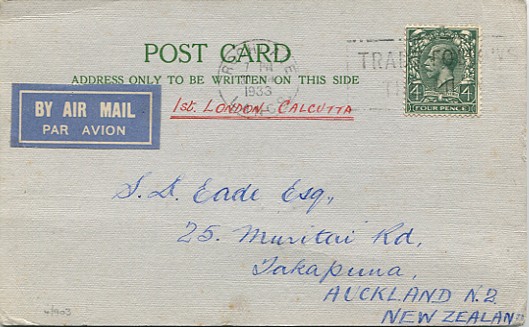 POST CARD
ADDRESS ONLY TO BE WRITTEN ON THIS SIDE
1933
BY AIR MAIL
PAR AVION
1st. LONDON, CALCUTTA
4 4
FOUR PENCE
S. D. Eade Esq.,
25. Muritai Rd,
Takapuna,
AUCKLAND N.2
NEW ZEALAND